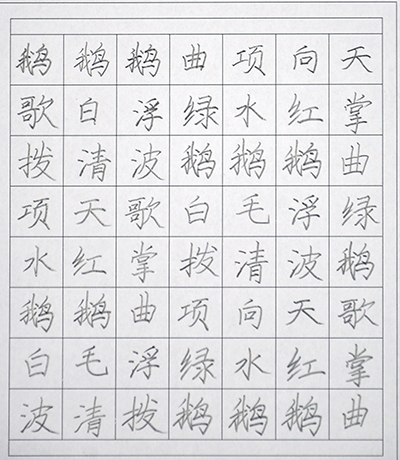 鹅鹅鹅曲项向天
歌白浮绿水红掌
拨清波鹅鹅鹅曲
项天歌白毛浮绿
水红掌拨清波鹅
鹅鹅曲项向天歌
白毛浮绿水红掌
波清拨鹅鹅鹅曲